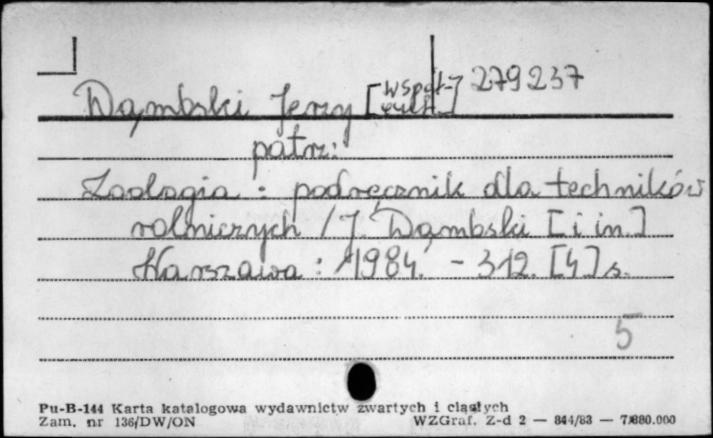 Dąmbski Jerzy [współ- 279237
aut.]
patrz:
Zoologia : podręcznik dla techników
rolniczych / J. Dąmbski [i in.]
Warszawa : 1984. - 312. [4] s.
5
Pu-B-144 Karta katalogowa wydawnictw zwartych i ciągłych
Zam. nr 136/DW/ON WZGraf. Z-d 2 — 844/83 — 7.880.000